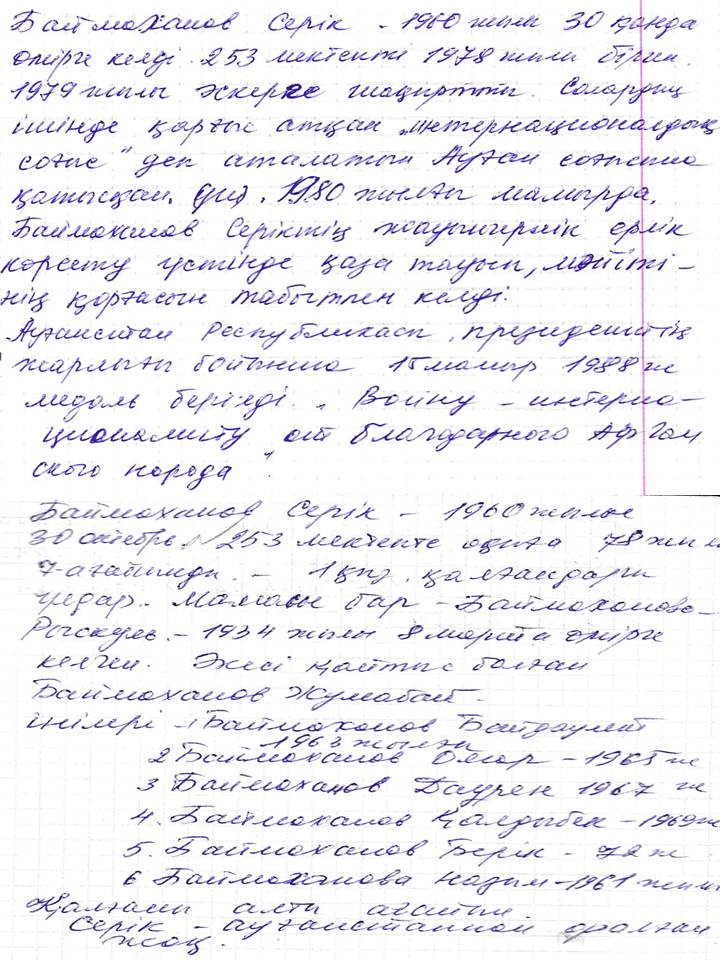 Баймоханов Серік - 1960 жылы 30 қанда
өмірге келді. 253 мектепті 1978 жылы бірген.
1979 жылы әскерге шақыртты. Солардың
ішінде қарғыс атқан „интернационалдық
соғыс" деп аталатын Ауған соғысына
қатысқан. 1980 жылғы мамырда.
Баймоханов Серіктің жауынгерлік ерлік
көрсету үстінде қаза тауып, мәйіті-
нің қорғасын табытпен келді.
Ауғанситан Республикасы, президентің
жарлығы бойынша 15 мамыр 1988 ж
медаль берілді. „Воину - интерна-
ционалисту от благодарного Афган
ского народа".
Баймоханов Серік - 1960 жылы
30 октябрь. N 253 мектепте оқыға 78 жылы
7-ағайынды. - 1 қыз. қалғандары
ұлдар. Мамасы бар - Баймоханова-
Рыскуль. - 1934 жылы 8 марта өмірге
келген. Әкесі қайтыс болған
Баймоханов Жумабай.
інілері - 1 Баймоханов Байдаулет
1963 жылғы
2 Баймоханов Омар - 1965 ж
3 Баймоханов Даурен 1967 ж
4. Баймоханов Қалдыбек - 1969 ж
5. Баймоханов Берік - 72 ж
6 Баймоханова Назым - 1961 жылы
Қалғаны алты ағайын.
Серік - ауғанстаннан оралған
жоқ.